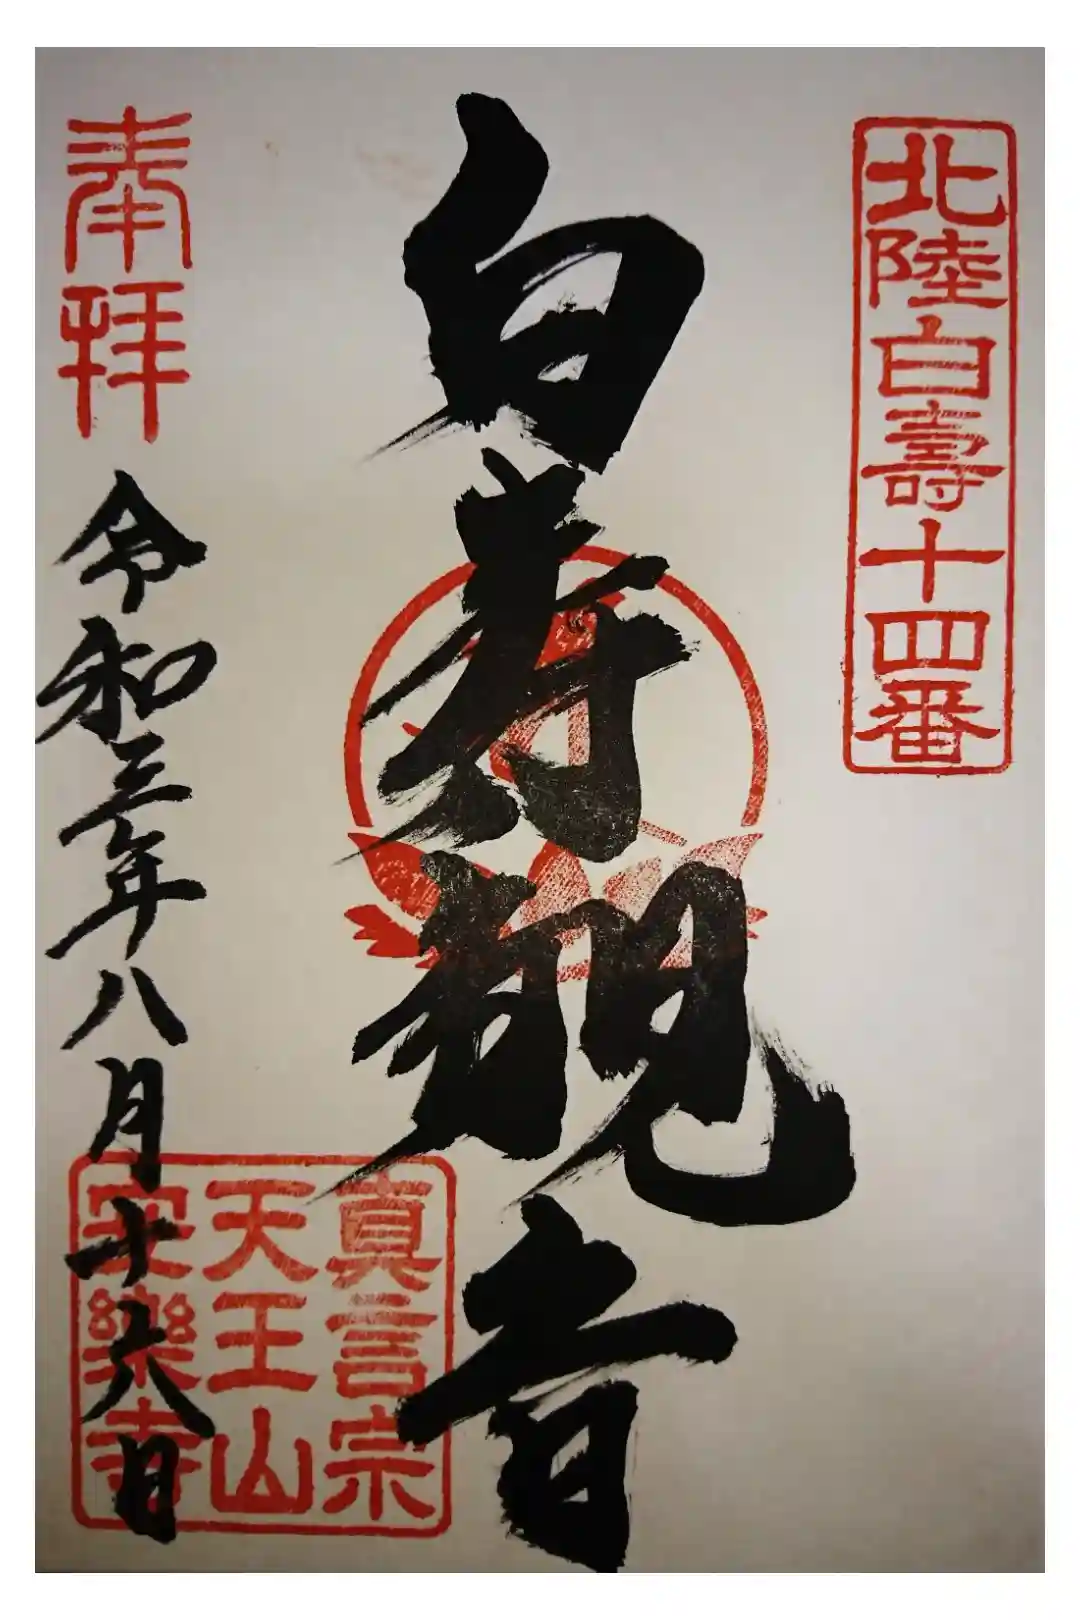 北陸白壽十四番
白寿観音
奉拝
令和三年八月十六日
真言宗
天王山
安樂寺